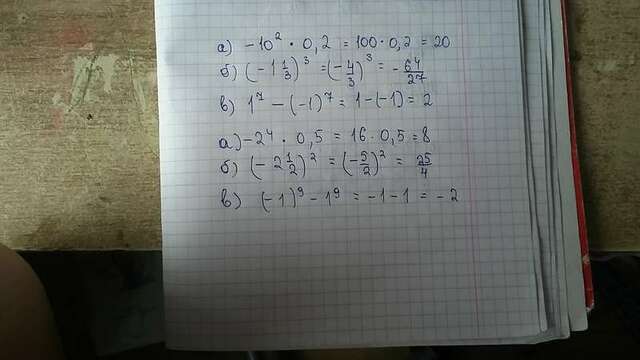 а) -10² · 0,2 = 100 · 0,2 = 20
б) (-1 1/3)³ = (-4/3)³ = -64/27
в) 1⁷ - (-1)⁷ = 1 - (-1) = 2
а) -2⁴ · 0,5 = 16 · 0,5 = 8
б) (-2 1/2)² = (-5/2)² = 25/4
в) (-1)⁹ - 1⁹ = -1 - 1 = -2